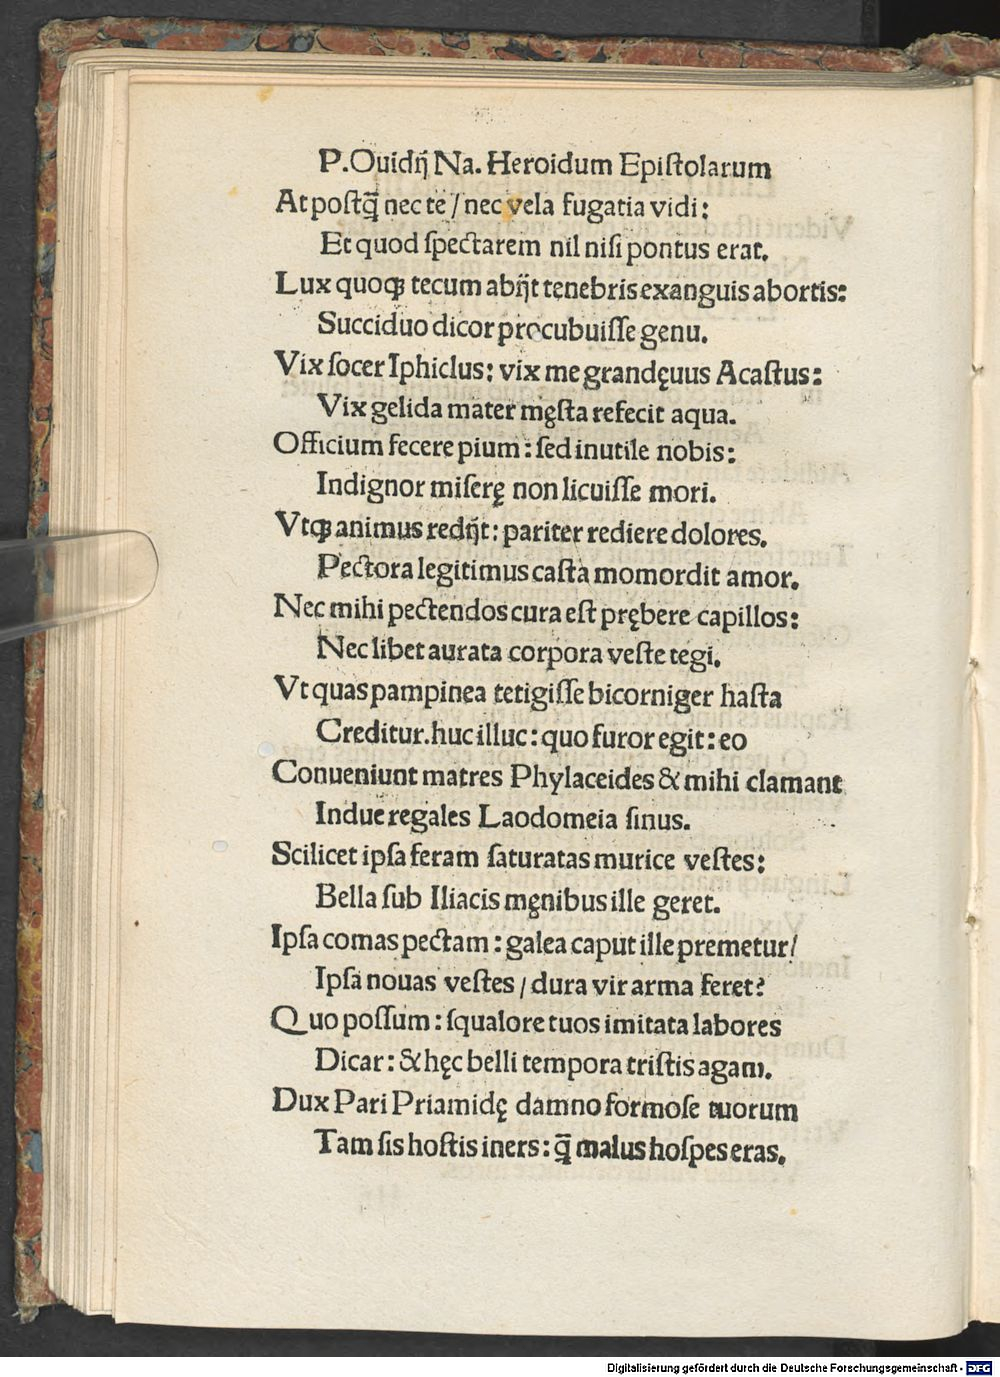 P.Ouidĳ Na. Heroidum Epiſtolarum
At poſtq̃ nec te / nec vela fugatia vidi:
Et quod ſpectarem nil niſi pontus erat.
Lux quoqꝫ tecum abĳt tenebris exanguis abortis:
Succiduo dicor procubuiſſe genu.
Vix ſocer Iphiclus: vix me grandęuus Acaſtus:
Vix gelida mater męſta refecit aqua.
Officium fecere pium: ſed inutile nobis:
Indignor miſerę non licuiſſe mori.
Vtqꝫ animus redĳt: pariter rediere dolores.
Pectora legitimus caſta momordit amor.
Nec mihi pectendos cura eſt prębere capillos:
Nec libet aurata corpora veſte tegi.
Vt quas pampinea tetigiſſe bicorniger haſta
Creditur. huc illuc: quo furor egit: eo
Conueniunt matres Phylaceides & mihi clamant
Indue regales Laodomeia ſinus.
Scilicet ipſa feram ſaturatas murice veſtes:
Bella ſub Iliacis męnibus ille geret.
Ipſa comas pectam: galea caput ille premetur/
Ipſa nouas veſtes / dura vir arma feret?
Quo poſſum: ſqualore tuos imitata labores
Dicar: & hęc belli tempora triſtis agam.
Dux Pari Priamidę damno formoſe tuorum
Tam ſis hoſtis iners: q̃ malus hoſpes eras.
Digitalisierung gefördert durch die Deutsche Forschungsgemeinschaft - DFG